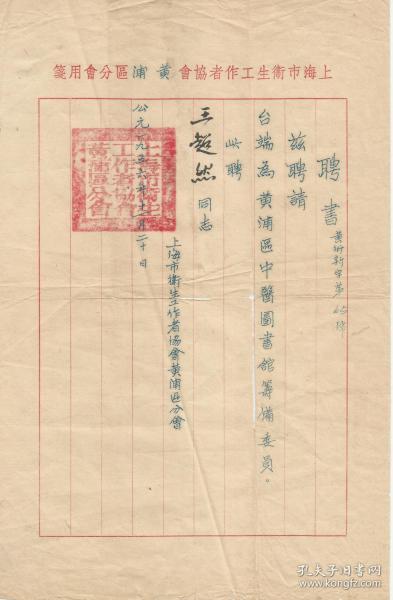 上海市衛生工作者協會黃浦區分會用箋
聘書
黃衛新字第65號
茲聘請
台端為黃浦區中醫圖書館籌備委員。
此聘
王超然同志
上海市衛生工作者協會黃浦區分會
公元一九五六年十二月二十日
上海市衛生
工作者協會
黃浦區分會
孔夫子旧书网
www.kongfz.com